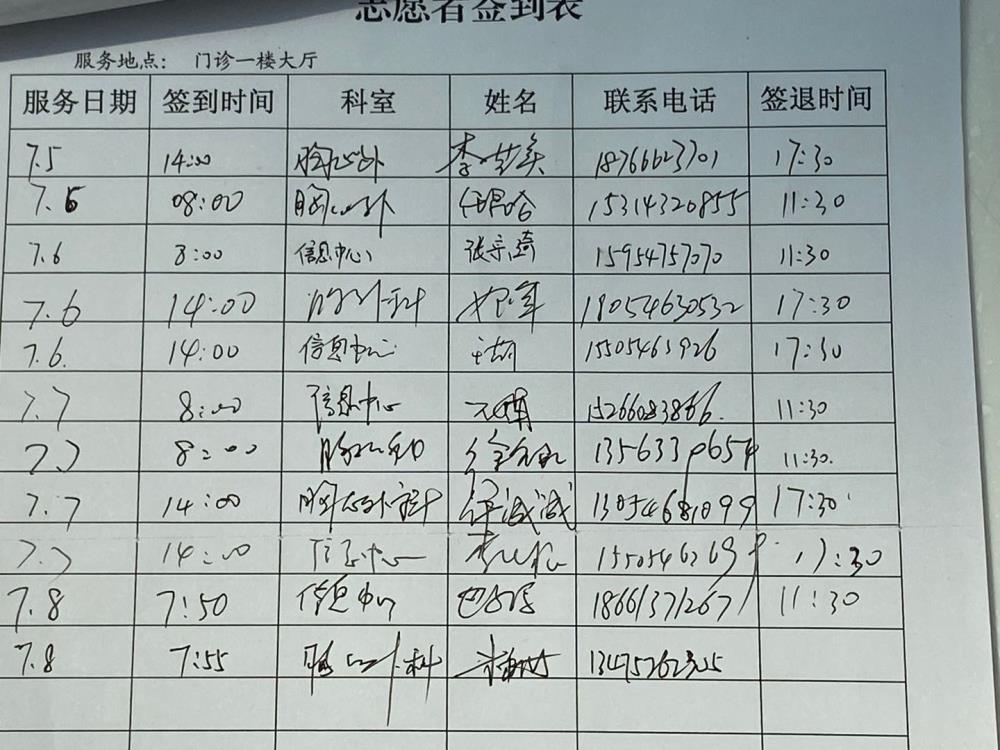 志愿者签到表
服务地点： 门诊一楼大厅
服务日期 签到时间 科室 姓名 联系电话 签退时间
7.5 14:00 胸心外 18766623701 17:30
7.6 08:00 胸心外 15314320855 11:30
7.6 8:00 信息中心 张宗琦 15954757070 11:30
7.6 14:00 胸外科 17:30
7.6. 14:00 信息中心 15505463926 17:30
7.7 8:00 信息中心 15266083866. 11:30
7.7 8:00 11:30.
7.7 14:00 胸心外科 许诚诚 13054681099 17:30
7.7 14:00 信息中心 17:30
7.8 7:50 信息中心 18661371267 11:30
7.8 7:55 胸心外科